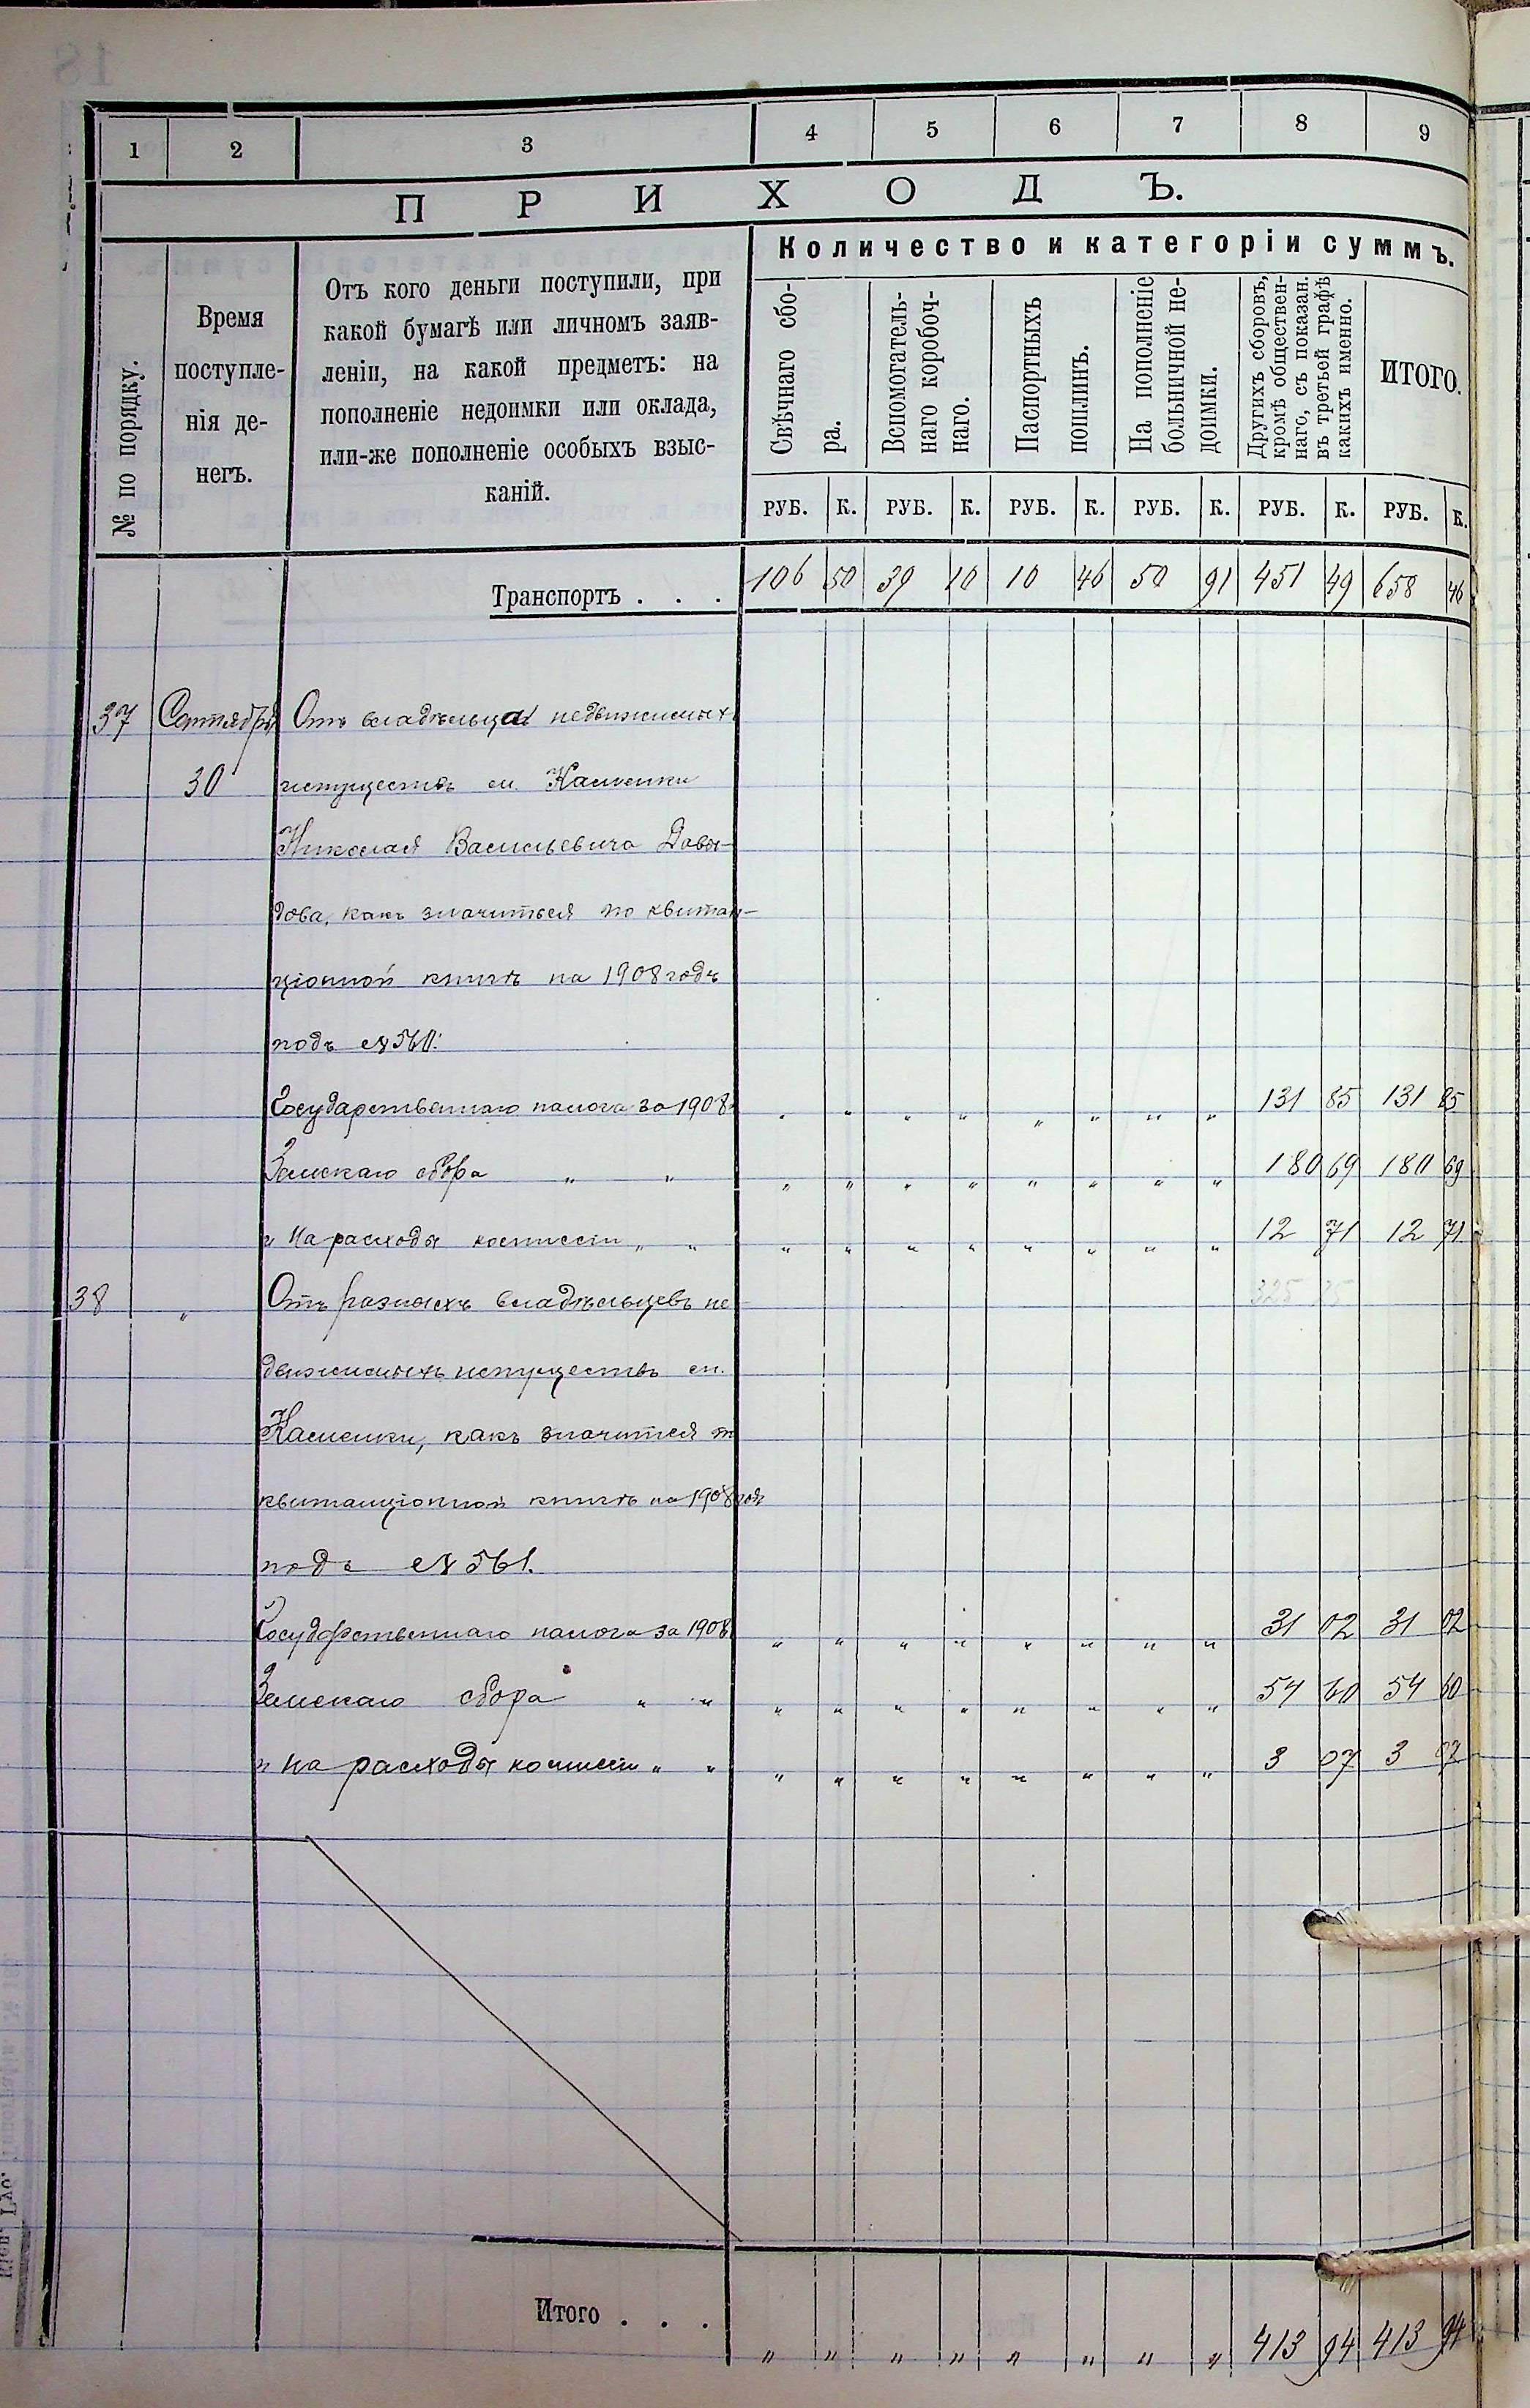 1 2 3 4 5 6 7 8 9
П Р И Х О Д Ъ.
№ по порядку.
Время
поступле-
нія де-
негъ.
Отъ кого деньги поступили, при
какой бумагѣ или личномъ заяв-
леніи, на какой предметъ: на
пополненіе недоимки или оклада,
или-же пополненіе особыхъ взыс-
каній.
Количество и категоріи суммъ.
Свѣчнаго сбо-
ра.
Вспомогатель-
наго коробоч-
наго.
Паспортныхъ
пошлинъ.
На пополненіе
больничной не-
доимки.
Другихъ сборовъ,
кромѣ обществен-
наго, съ показан.
въ третьей графѣ
какихъ именно.
ИТОГО.
РУБ. К. РУБ. К. РУБ. К. РУБ. К. РУБ. К. РУБ. К.
Транспортъ . . . 106 50 39 10 10 46 50 91 451 49 658 46
37 Сентября Отъ владѣльца недвижимыхъ
30 имуществъ м. Каменки
Николая Васильевича Давы-
дова, какъ значиться по квитан-
ціонной книгѣ на 1908 годъ
подъ № 560:
Государственнаго налога за 1908 " " " " " " " " 131 85 131 85
Земскаго сбора " " " " " " " " " " 180 69 180 69
и на расходы коммисіи " " " " " " " " " " 12 71 12 71
325 25
38 " Отъ разныхъ владѣльцевъ не
движимыхъ имуществъ м.
Каменки, какъ значится по
квитанціонной книгѣ на 1908 годъ
подъ № 561.
Государственнаго налога за 1908 " " " " " " " " 31 02 31 02
Земскаго сбора " " " " " " " " " " 54 60 54 60
и на расходы коммисіи " " " " " " " " " " 3 07 3 07
Итого . . . " " " " " " " " 413 94 413 94